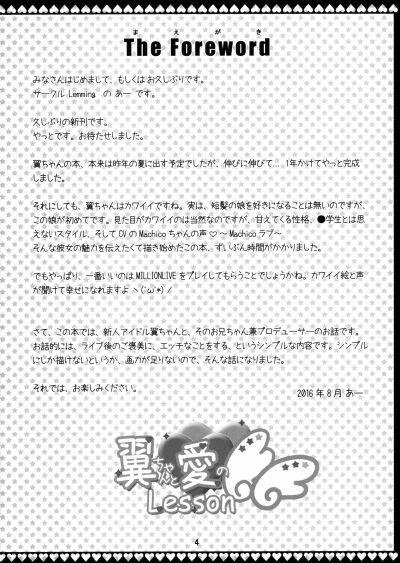 まえがき
The Foreword
みなさんはじめまして、もしくはお久しぶりです。
サークル Lemming の あー です。
久しぶりの新刊です。
やっとです。お待たせしました。
翼ちゃんの本、本来は昨年の夏に出す予定でしたが、伸びに伸びて… 1年かけてやっと完成
しました。
それにしても、翼ちゃんはカワイイですね。実は、短髪の娘を好きになることは無いのですが、
この娘が初めてです。見た目がカワイイのは当然なのですが、甘えてくる性格、●学生とは思
えないスタイル、そして CVの Machico ちゃんの声♡～Machico ラブ～
そんな彼女の魅力を伝えたくて描き始めたこの本、ずいぶん時間がかかりました。
でもやっぱり、一番いいのは MILLIONLIVE をプレイしてもらうことでしょうかね。カワイイ絵と声
が聞けて幸せになれますよ ヽ(´ω`*)ノ
さて、この本では、新人アイドル翼ちゃんと、そのお兄ちゃん兼プロデューサーのお話です。
お話的には、ライブ後のご褒美に、エッチなことをする、というシンプルな内容です。シンプル
にしか描けないというか、画力が足りないので、そんな話になりました。
それでは、お楽しみください。
2016 年 8 月 あー
翼ちゃんと愛の
Lesson
4